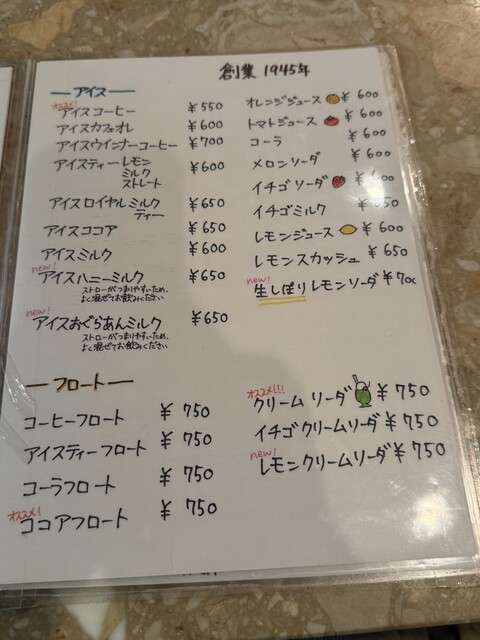 創業 1945年
アイス
オススメ!
アイスコーヒー ¥550
アイスカフェオレ ¥600
アイスウインナーコーヒー ¥700
アイスティー レモン ¥600
ミルク
ストレート
アイスロイヤルミルク ¥650
ティー
アイスココア ¥650
アイスミルク ¥600
new!
アイスハニーミルク ¥650
ストローがつまりやすいため、
よく混ぜてお飲みください
new!
アイスおぐらあんミルク ¥650
ストローがつまりやすいため、
よく混ぜてお飲みください
オレンジジュース ¥600
トマトジュース ¥600
コーラ ¥600
メロンソーダ ¥600
イチゴソーダ ¥600
イチゴミルク 650
レモンジュース ¥600
レモンスカッシュ ¥650
new!
生しぼりレモンソーダ ¥700
フロート
コーヒーフロート ¥750
アイスティーフロート ¥750
コーラフロート ¥750
オススメ!
ココアフロート ¥750
オススメ!!!
クリームソーダ ¥750
イチゴクリームソーダ ¥750
new!
レモンクリームソーダ ¥750